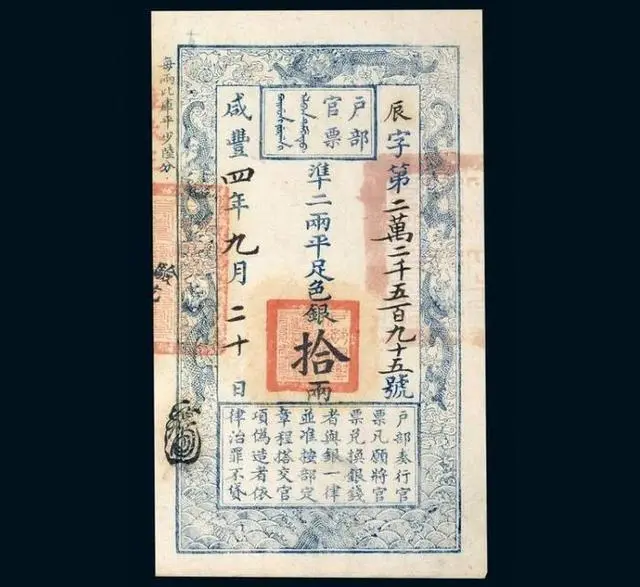 户部
官票
辰字第二萬二千五百九十五號
準二兩平足色銀拾兩
咸豐四年九月二十日
每兩比庫平少陸分
户部奏行官
票凡願將官
票兑換銀錢
者與銀一律
並准按部定
章程搭交官
項偽造者依
律治罪不貸